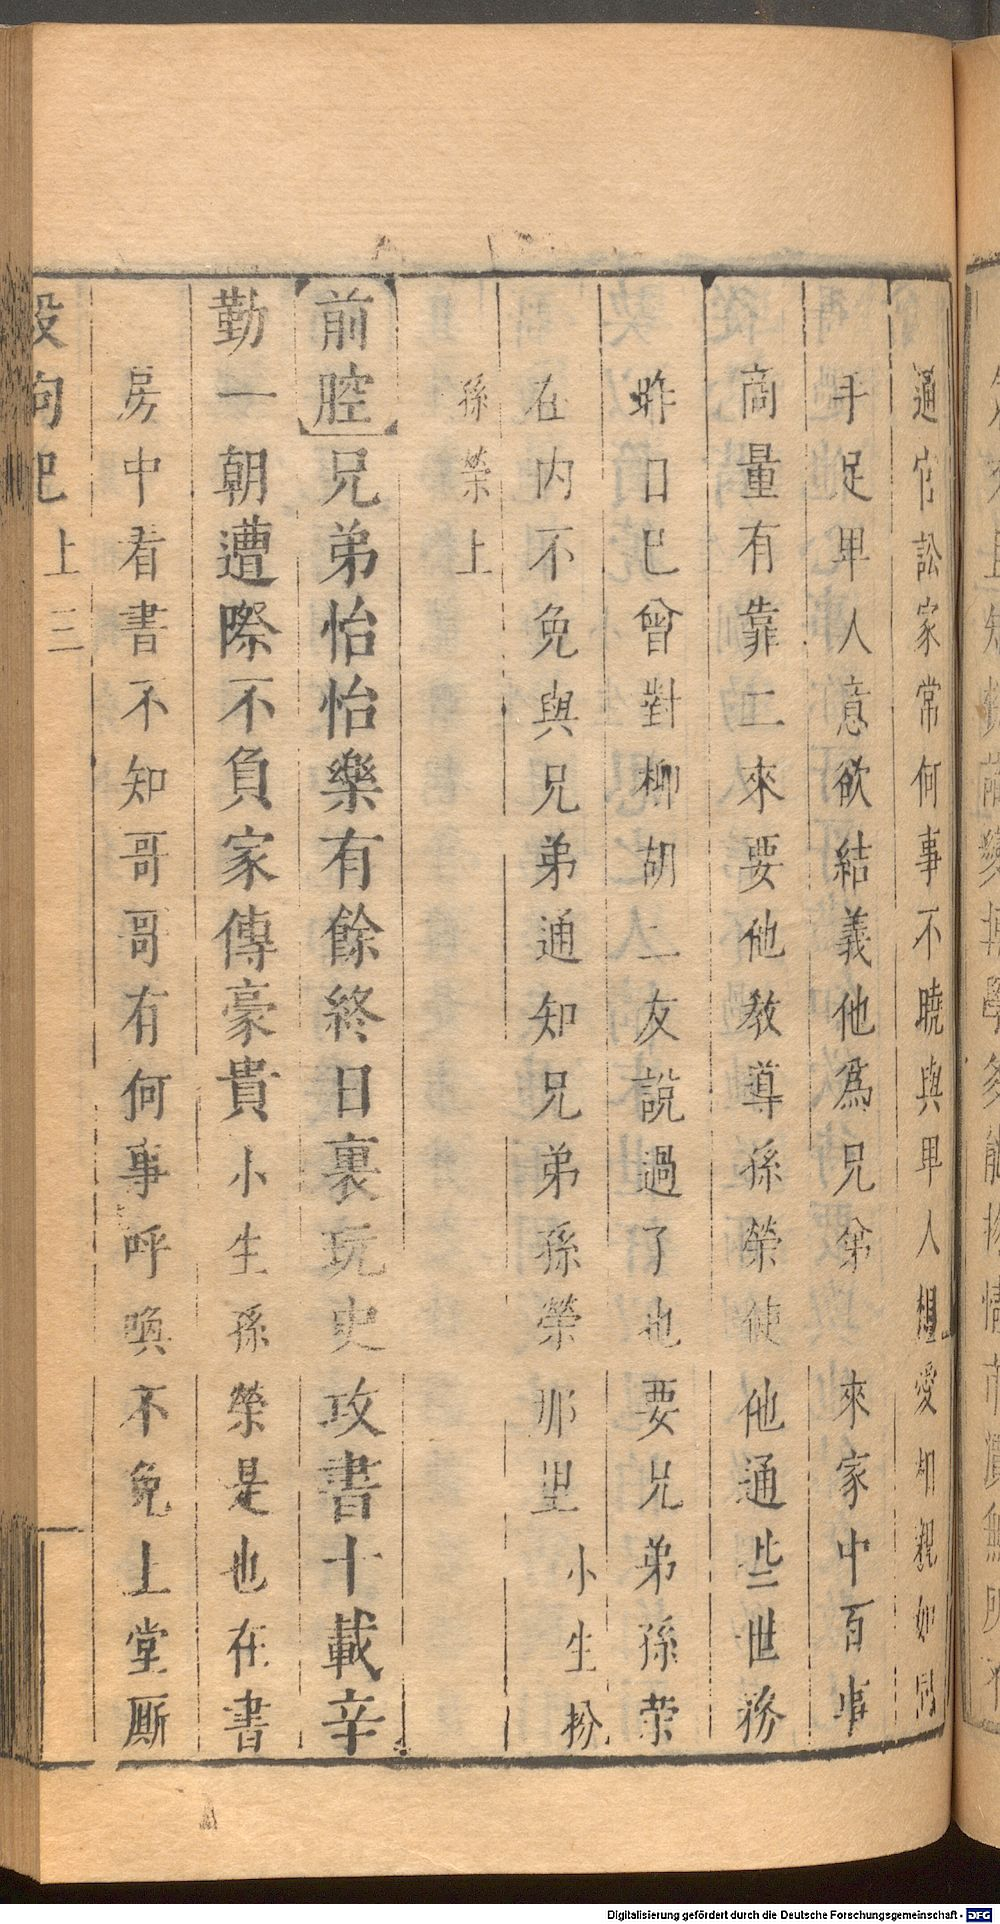 通官訟家常何事不曉與卑人想愛如親如同
手足卑人意欲結義他爲兄弟 來家中百事
商量有靠二來要他教導孫榮使他通些世務
昨日已曾對柳胡二友說過了也要兄弟孫荣
在内不免與兄弟通知兄弟孫榮那里 小生扮
孫荣上
【前腔】兄弟怡怡樂有餘終日裏玩史攻書十載辛
勤一朝遭際不負家傳豪貴小生孫荣是也在書
房中看書不知哥哥有何事呼喚不免上堂厮
殺狗記 上 三
Digitalisierung gefördert durch die Deutsche Forschungsgemeinschaft - DFG